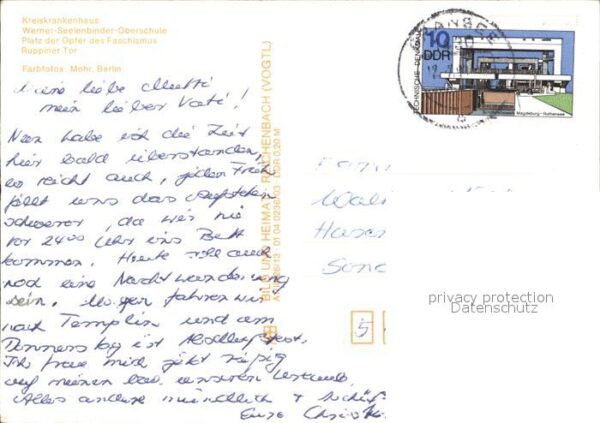 Kreiskrankenhaus
Werner-Seelenbinder-Oberschule
Platz der Opfer des Faschismus
Ruppiner Tor
Farbfotos: Mohr, Berlin
Meine liebe Mutti
mein lieber Vati!
Nun habe ich die Zeit
hier bald überstanden,
es reicht auch, jeden Früh
fällt uns das Aufstehen
schwerer, da wir nie
vor 24⁰⁰ Uhr ins Bett
kommen. Heute soll auch
noch eine Nachtwanderung
sein. Morgen fahren wir
nach Templin und am
Donnerstag ist Abschlußfest.
Ich freue mich jetzt riesig
auf meinen bzw. unseren Urlaub.
Alles andere mündlich
Eure
BILD UND HEIMAT REICHENBACH (VOGTL)
01 04 0236/03 DDR 0,20 M
GRANSEE
10
DDR
TECHNISCHE DENKMALE
Magdeburg-Rothensee
5
privacy protection
Datenschutz